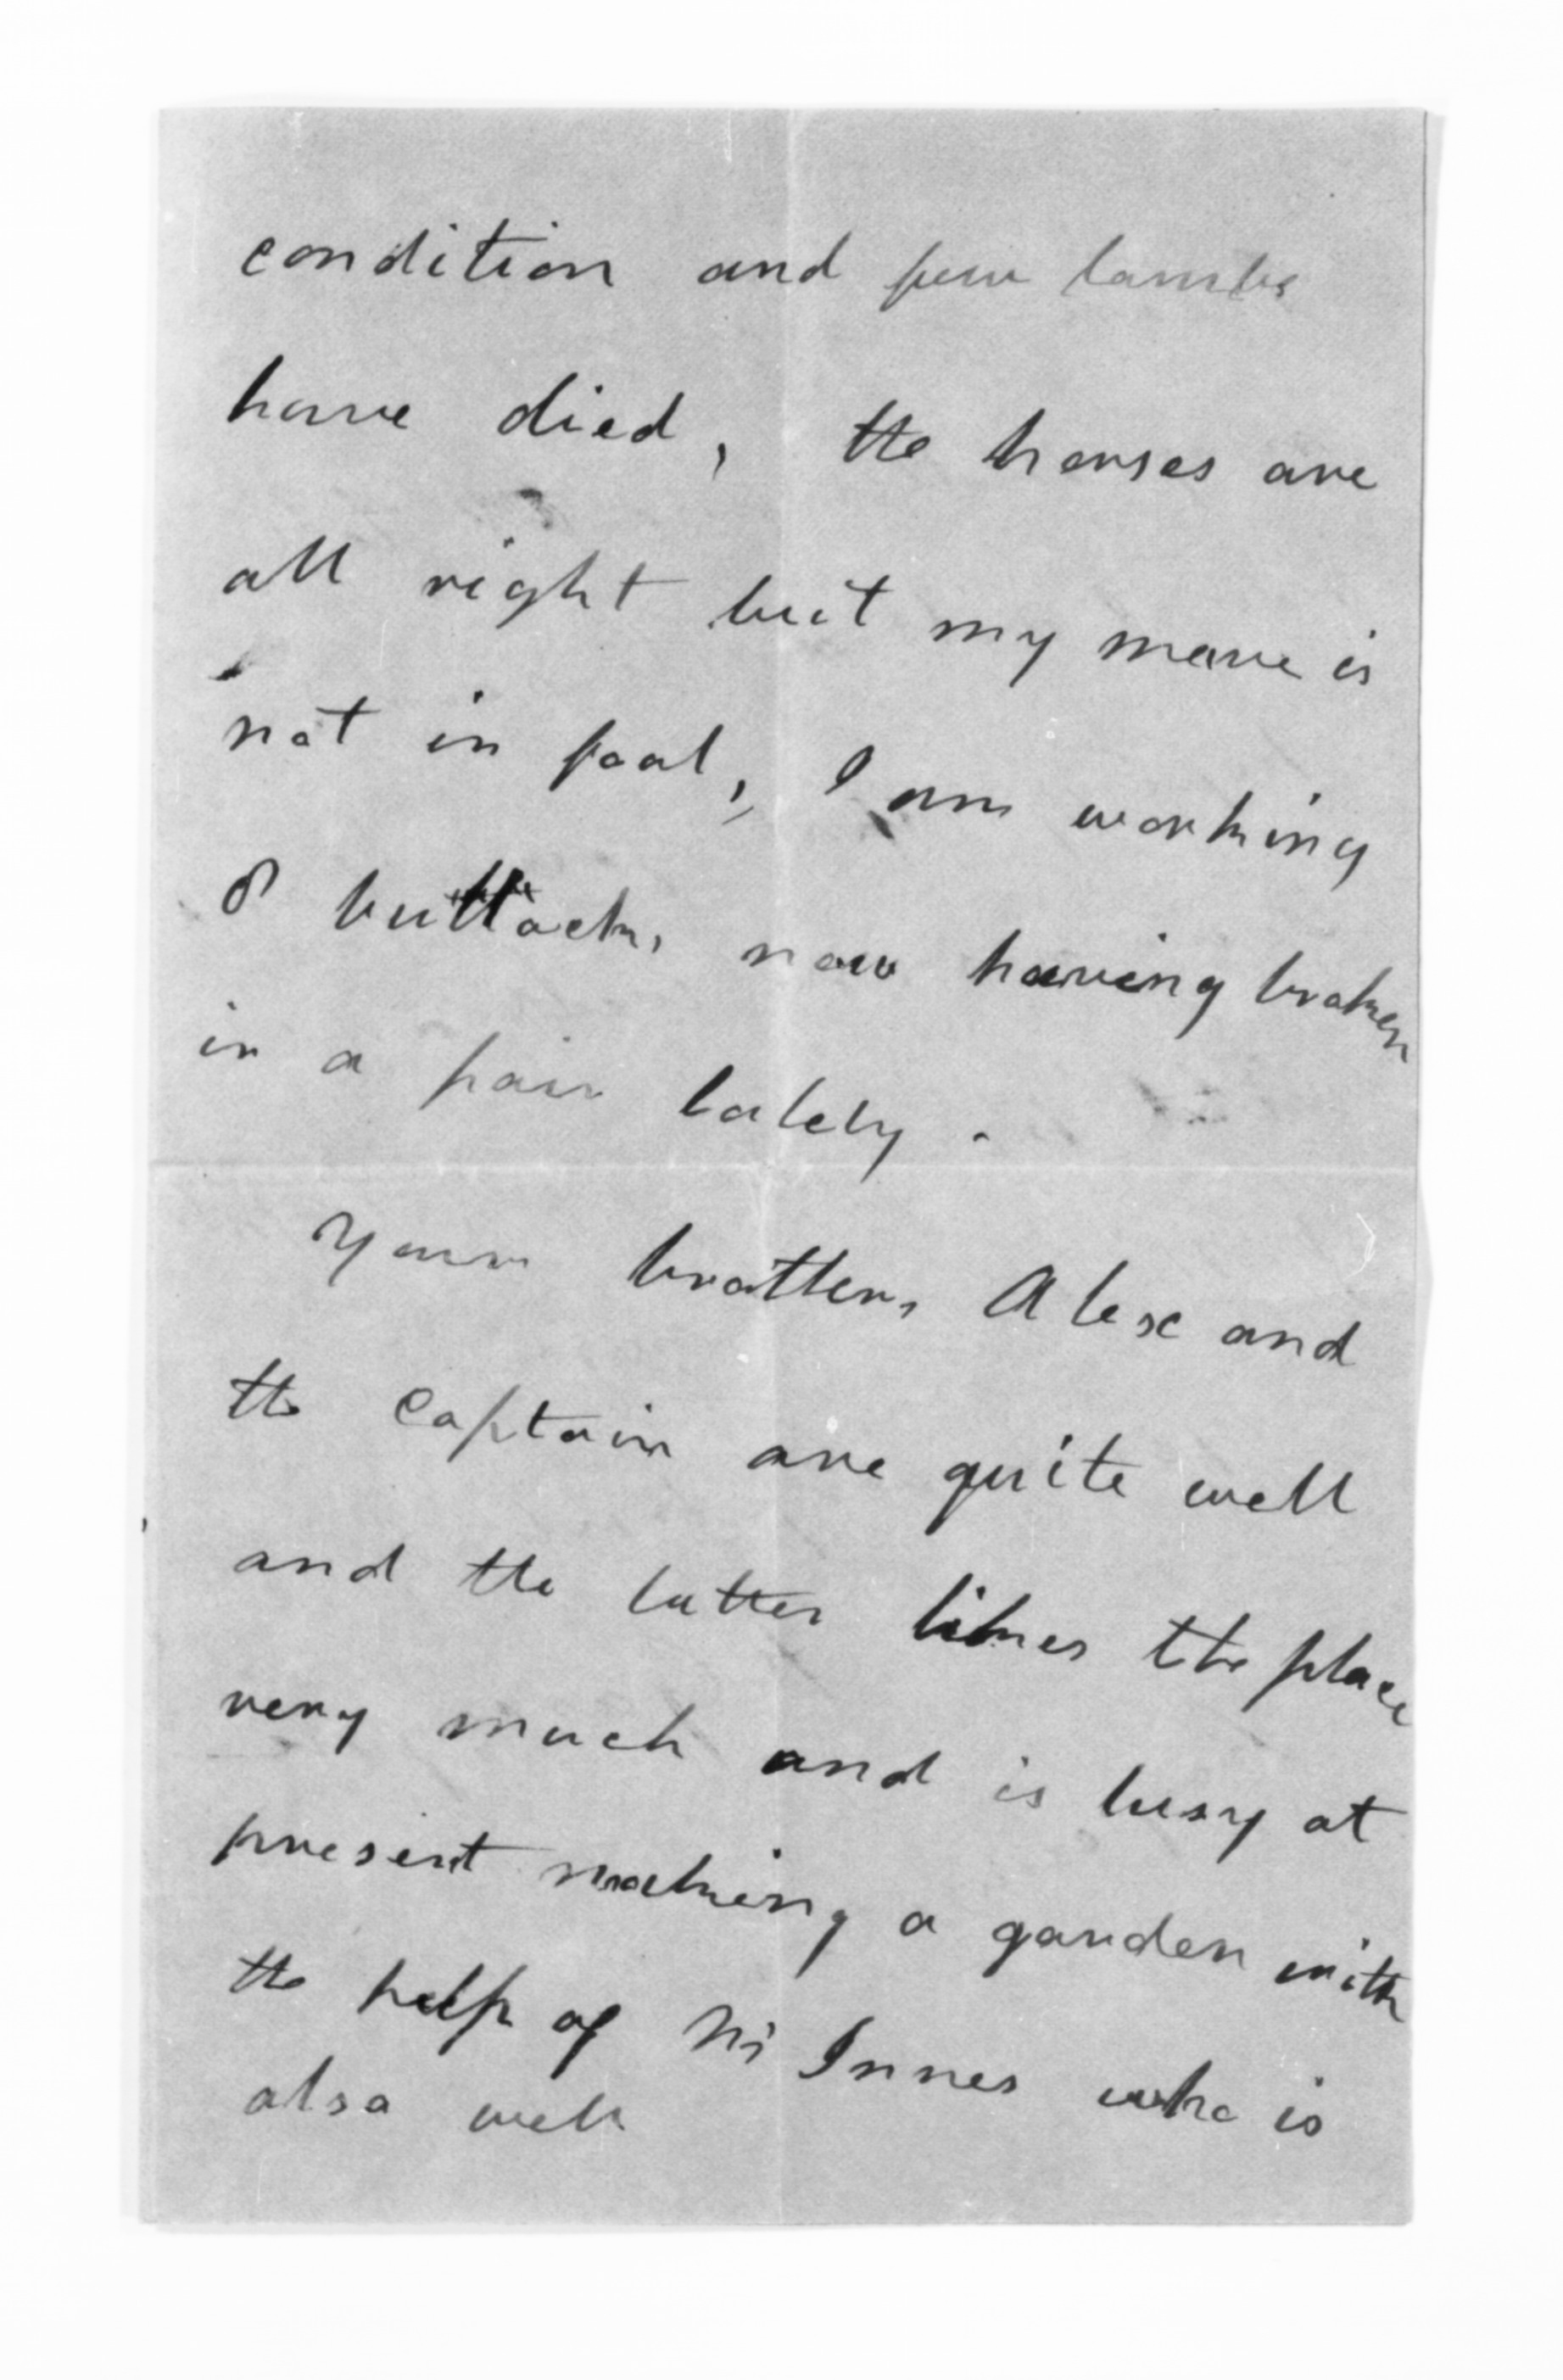 condition and few lambs
have died, the horses are
all right but my mare is
not in foal, I am working
8 bullocks now having broken
in a pair lately.
Your brothers Alex and
the Captain are quite well
and the latter likes the place
very much and is busy at
present making a garden with
the help of Mr Innes who is
also well